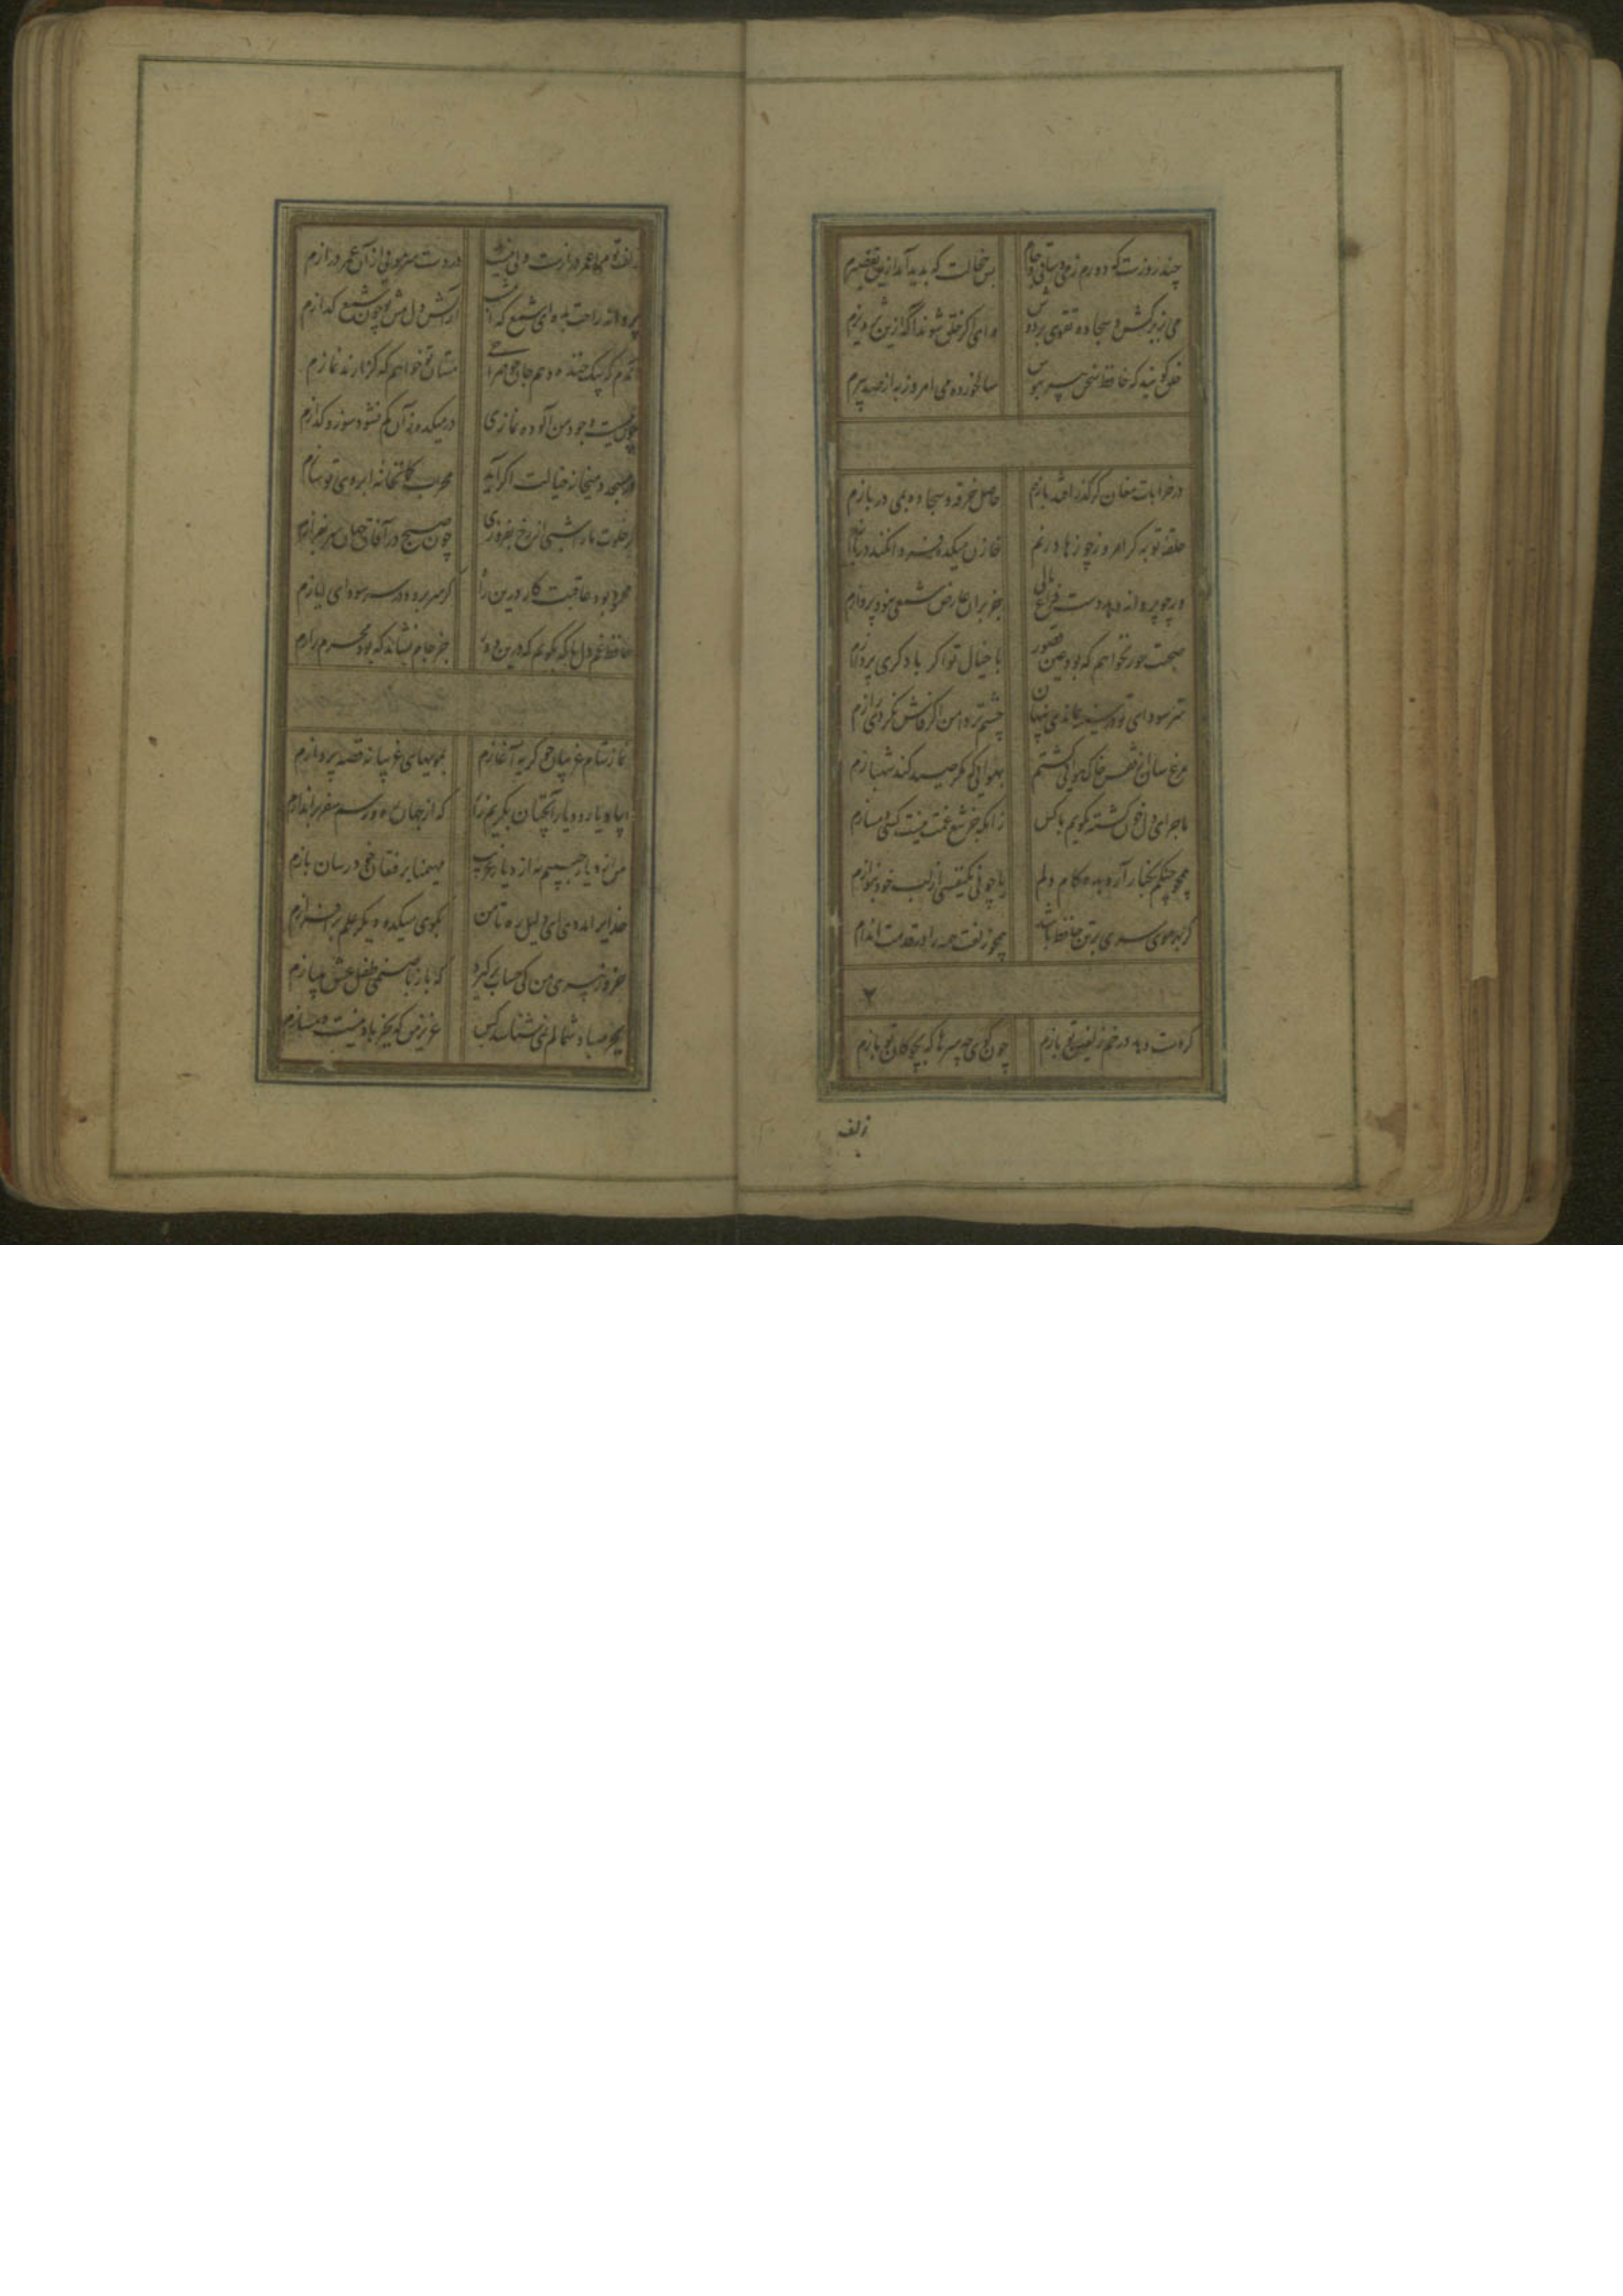 چند روزست که دورم ز می و ساقی و جام بس خجالت که پدید آید ازین تقصیرم
می بزیر کش و سجاده تقوی بر دوش وای اگر خلق شوند آگه ازین تزویرم
خلق گویند که حافظ سخن پیر نیوش سالخورده می امروز به از صد پیرم
در خرابات مغان گر گذر افتد بازم حاصل خرقه و سجاده بمی در بازم
حلقه توبه گر امروز چو زهاد زنم خازن میکده فردا نکند در بازم
ور چو پروانه دهد دست فراغ بالی جز بران عارض شمعی نبود پروازم
صحبت حور نخواهم که بود عین قصور با خیال تو اگر با دگری پردازم
سر سودای تو در سینه بماندی پنهان چشم تر دامن اگر فاش نکردی رازم
مرغ سان از قفس خاک هوایی گشتم بهوایی که مگر صید کند شهبازم
ماجرای دل خون گشته نگویم با کس زانکه جز تیغ غمت نیست کسی دمسازم
همچو چنگم بکنار آر و بده کام دلم یا چو نی یکنفسی از لب خود بنوازم
گر بهر موی سری بر تن حافظ باشد همچو زلفت همه را در قدمت اندازم
گر دست دهد در خم زلفین تو بازم چون گوی چه سرها که بچوگان تو بازم
زلف
زلف تو مرا عمر درازست ولی نیست در دست سر مویی از آن عمر درازم
پروانه راحت بده ای شمع که امشب از آتش دل پیش تو چون شمع گدازم
آن دم که بیک خنده دهم جان چو صراحی مستان تو خواهم که گزارند نمازم
چون نیست وجود من آلوده نمازی در میکده زان کم نشود سوز و گدازم
در مسجد و میخانه خیالت اگر آید محراب و کمانخانه ز ابروی تو سازم
گر خلوت ما را شبی از رخ بفروزی چون صبح در آفاق جهان سر بفرازم
محمود بود عاقبت کار درین راه گر سر برود در سر سودای ایازم
حافظ غم دل با که بگویم که درین دور جز جام نشاید که بود محرم رازم
نماز شام غریبان چو گریه آغازم بمویهای غریبانه قصه پردازم
بیاد یار و دیار آنچنان بگریم زار که از جهان ره و رسم سفر براندازم
من از دیار حبیبم نه از دیار غریب مهیمنا برفیقان خود رسان بازم
خدایرا مددی ای دلیل ره تا من بکوی میکده دیگر علم برافرازم
خرد ز پیری من کی حساب برگیرد که باز با صنمی طفل عشق میبازم
بجز صبا و شمالم نمی شناسد کس عزیز من که بجز باد نیست دمسازم